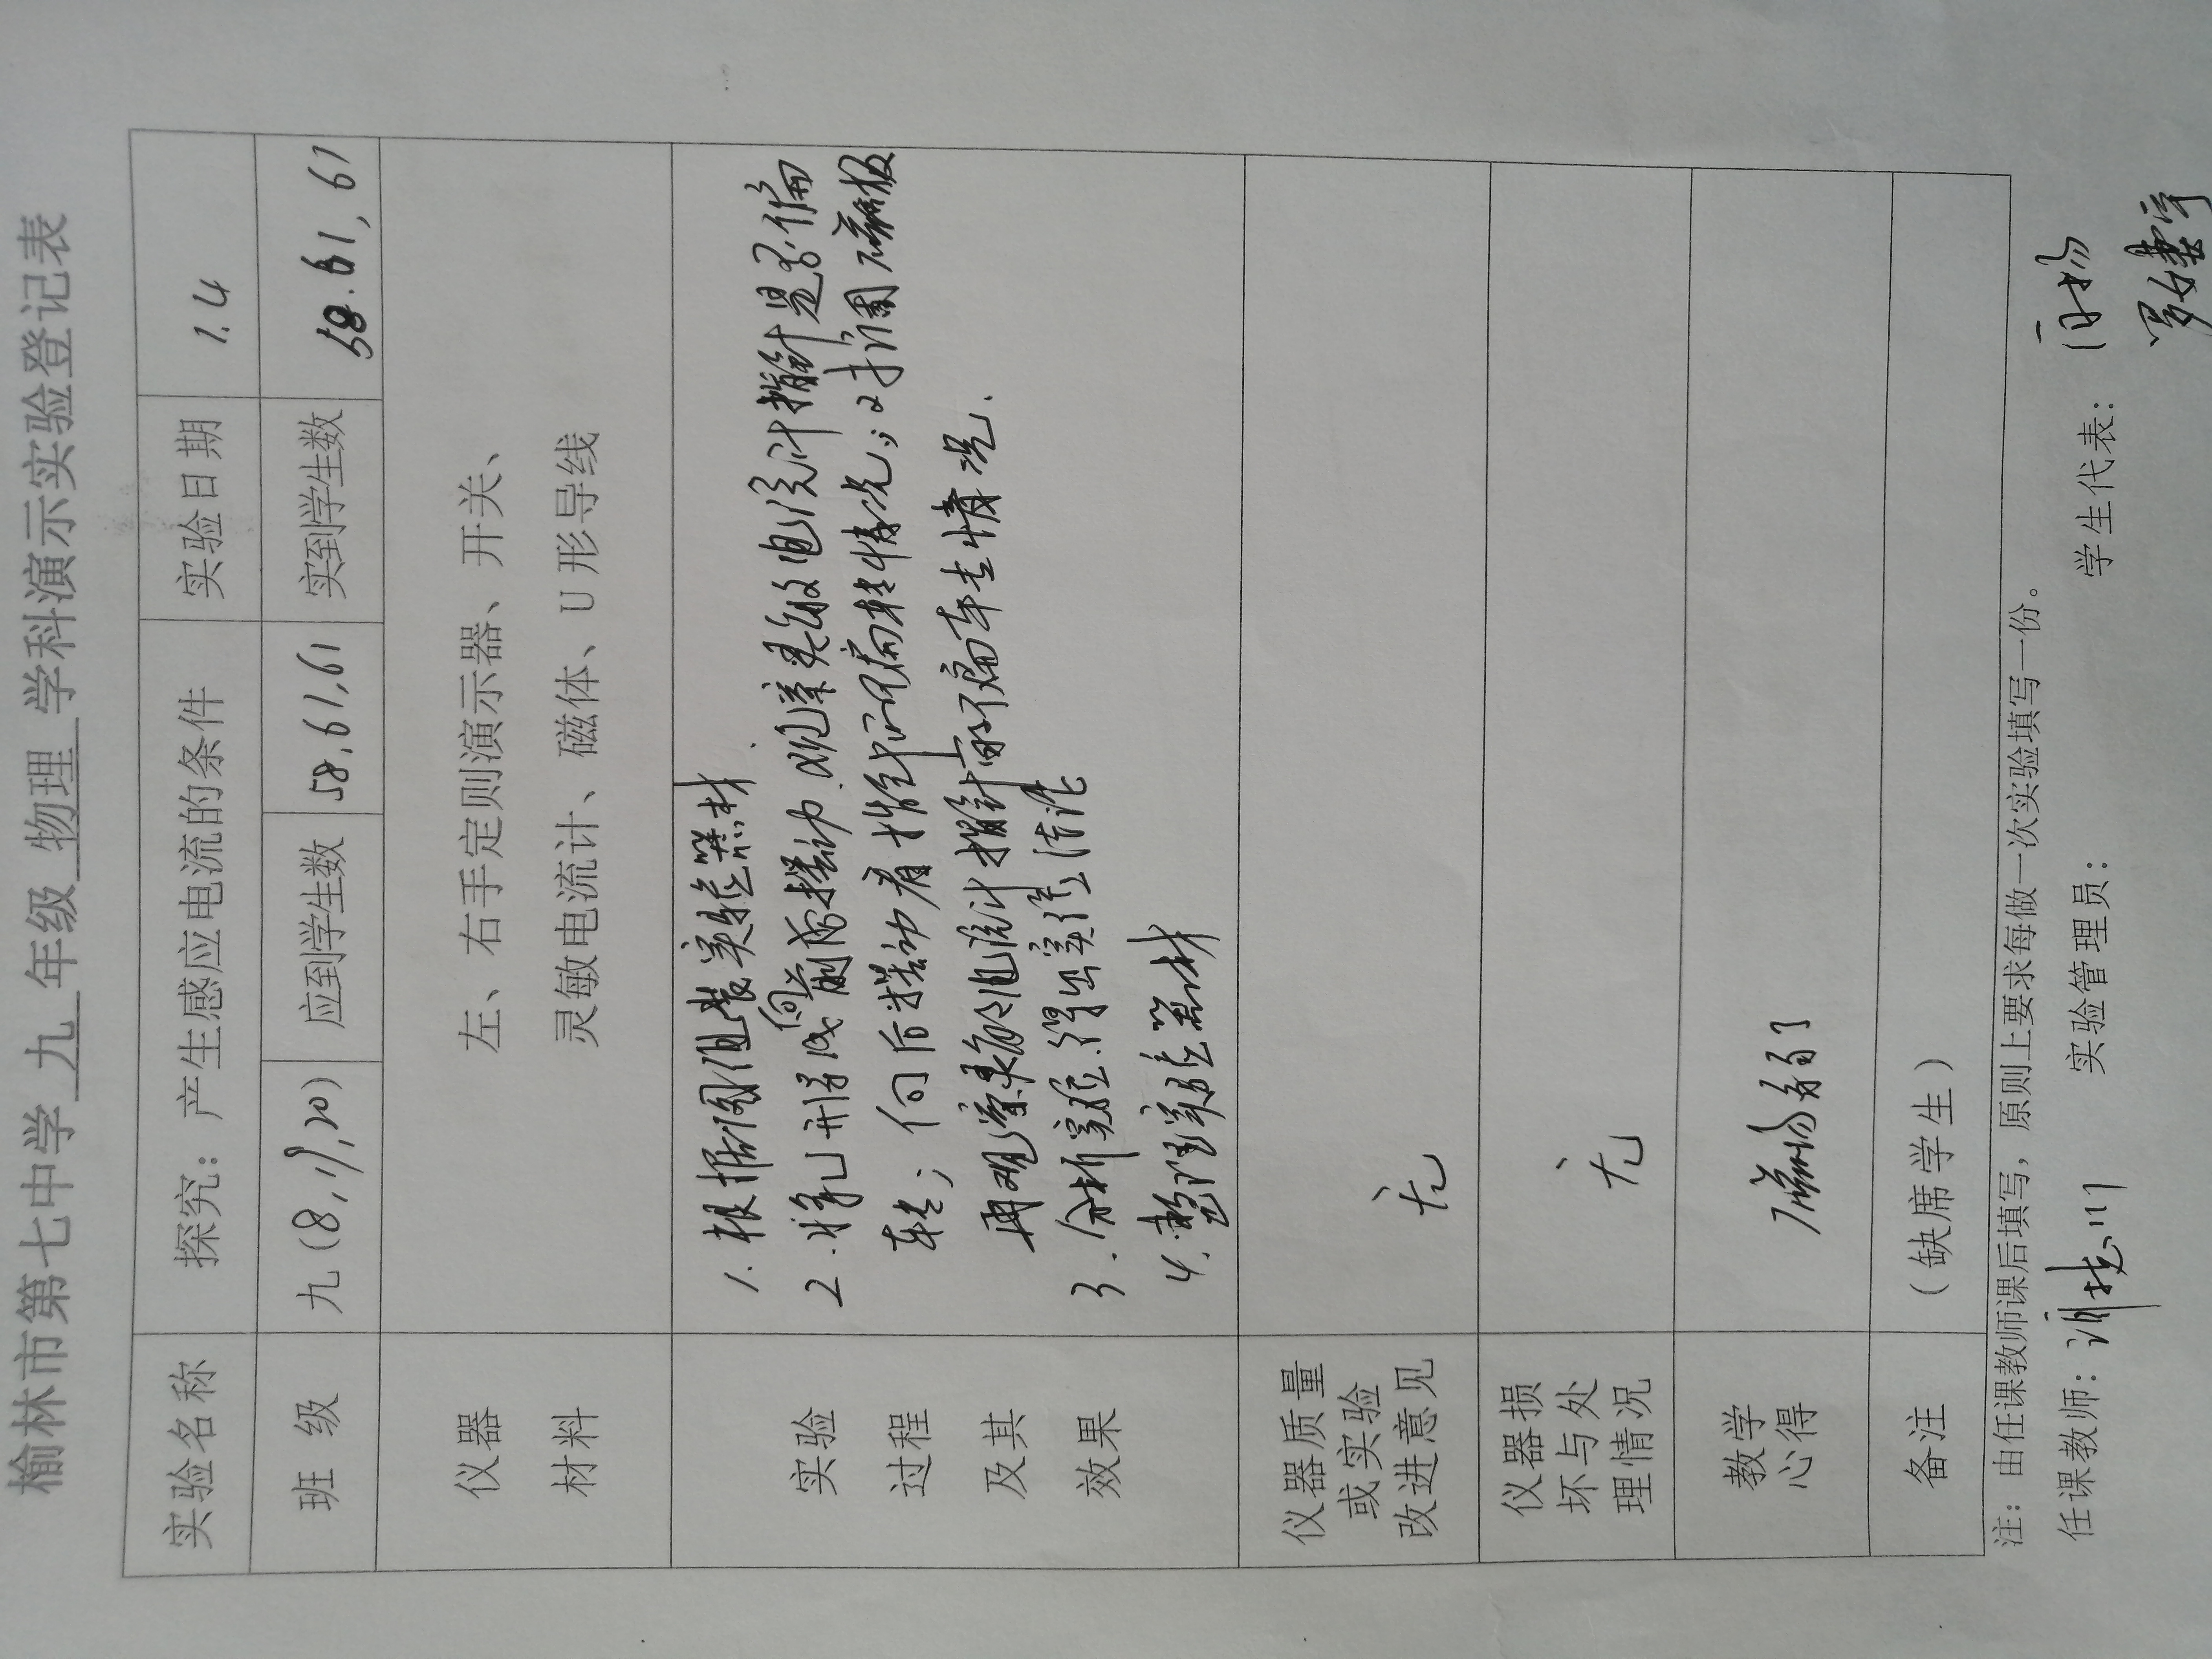 榆林市第七中学 九 年级 物理 学科演示实验登记表
实验名称 探究：产生感应电流的条件 实验日期 1.4
班 级 九(8,19,20) 应到学生数 58,61,61 实到学生数 58.61,61
仪器 左、右手定则演示器、开关、
材料 灵敏电流计、磁体、U形导线
实验
过程
及其
效果
1.根据图组装实验器材
2.将U形导线向前面摆动.观察灵敏电流计指针是否偏
转；向后摆动看指针的偏转情况；对调磁极
再观察灵敏电流计指针的偏转情况.
3.分析实验.得出实验结论
4.整理实验器材
仪器质量
或实验
改进意见
无
仪器损
坏与处
理情况
无
教学
心得
磁场弱了
备注 （缺席学生）
注：由任课教师课后填写，原则上要求每做一次实验填写一份。
任课教师： 实验管理员： 学生代表：